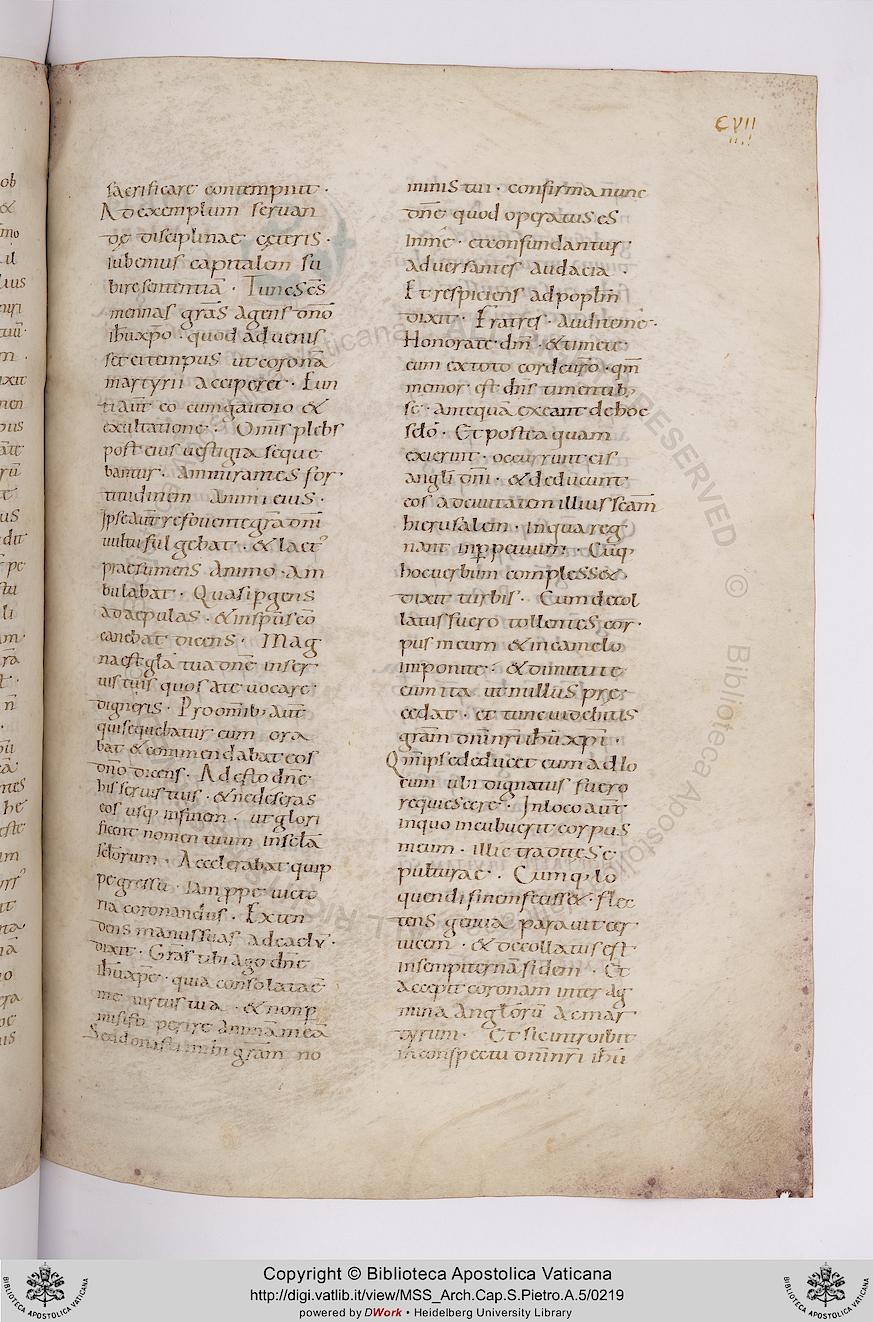 CVII
sacrificare contempnit·
Adexemplum seruan
dę disciplinae cęteris·
iubemus capitalem su
biresententiā· Tuncsc̄s
mennas grās agens dn̄o
ih̄uxp̄o· quod aduenis
set eitempus ut coronā
martyrii acciperet· Eun
tiaūt eo cumgaudio &
exultatione· Omisplebs
post eius uestigia seque
bantur· Ammirantes for
titudinem animi eius·
Ipseaūt refouentegr̄a dn̄i
uultu fulgebat· & laet
praesumens animo· am
bulabat· Quasip̱gens
adaepulas· & insp̄us eo
canebat dicens· Mag
naest gl̄a tua dn̄e inser
uis tuis quos ate uocare
digneris· Proomīb; aūt
quisequebatur eum ora
bat & commendabat eos
dn̄o dicens· Adesto dn̄e
his seruis tuis· & nedeseras
eos usq; infinem· ut glori
ficent nomen tuum insc̄la
sc̄lorum· Accelerabat quip
pe gressu· Iamp̱pe uicto
ria coronandus· Exten
dens manus suas adcaelū·
dixit· Grās tibi ago dn̄e
ih̄uxp̄e· quia consolatae
me uirtus tua· & nonp̱
misisti perire animameā
Seddonasti mihi gr̄am no
minis tui· confirma nunc
dn̄e quod operatus es
inme· etconfundantur
aduersantes audacia·
Et respiciens adpopl̄m
dixit· Fratres· Auditeme·
Honorate dm̄· & timete
eum ex toto cordeur̄o· qm̄
memor est dn̄s timentib;
se· antequā exeant dehoc
sc̄lo· Et postea quam
exierint· occurrunt eis
angl̄i dn̄i· & deducunt
eos adciuitatem illius sc̄am
hierusalem· inqua reg
nant inp̱petuum· Cūq;
hocuerbum compless&·
dixit turbis· Cumdecol
latus fuero tollentes cor·
pus meum & incamelo
imponite· & dimittite
eum ita ut nullus prę
cedat· et tunc uidebitis
gr̄am dn̄i nr̄i ih̄uxp̄i·
Qm̄ ipse deducet eum ad lo
cum ubi dignatus fuero
requiescere· Inloco aūt
inquo incubuerit corpus
meum· illic tradite se
pulturae· Cumq; lo
quendi finem feciss&· flec
tens genua parauit cer
uicem· & decollatus est
insempiternā fidem· Et
accepit coronam inter ag
mina anglōrū ac mar
tyrum· Et sic introibit
inconspectu dn̄i nr̄i ih̄u
Copyright © Biblioteca Apostolica Vaticana
http://digi.vatlib.it/view/MSS_Arch.Cap.S.Pietro.A.5/0219
powered by DWork • Heidelberg University Library